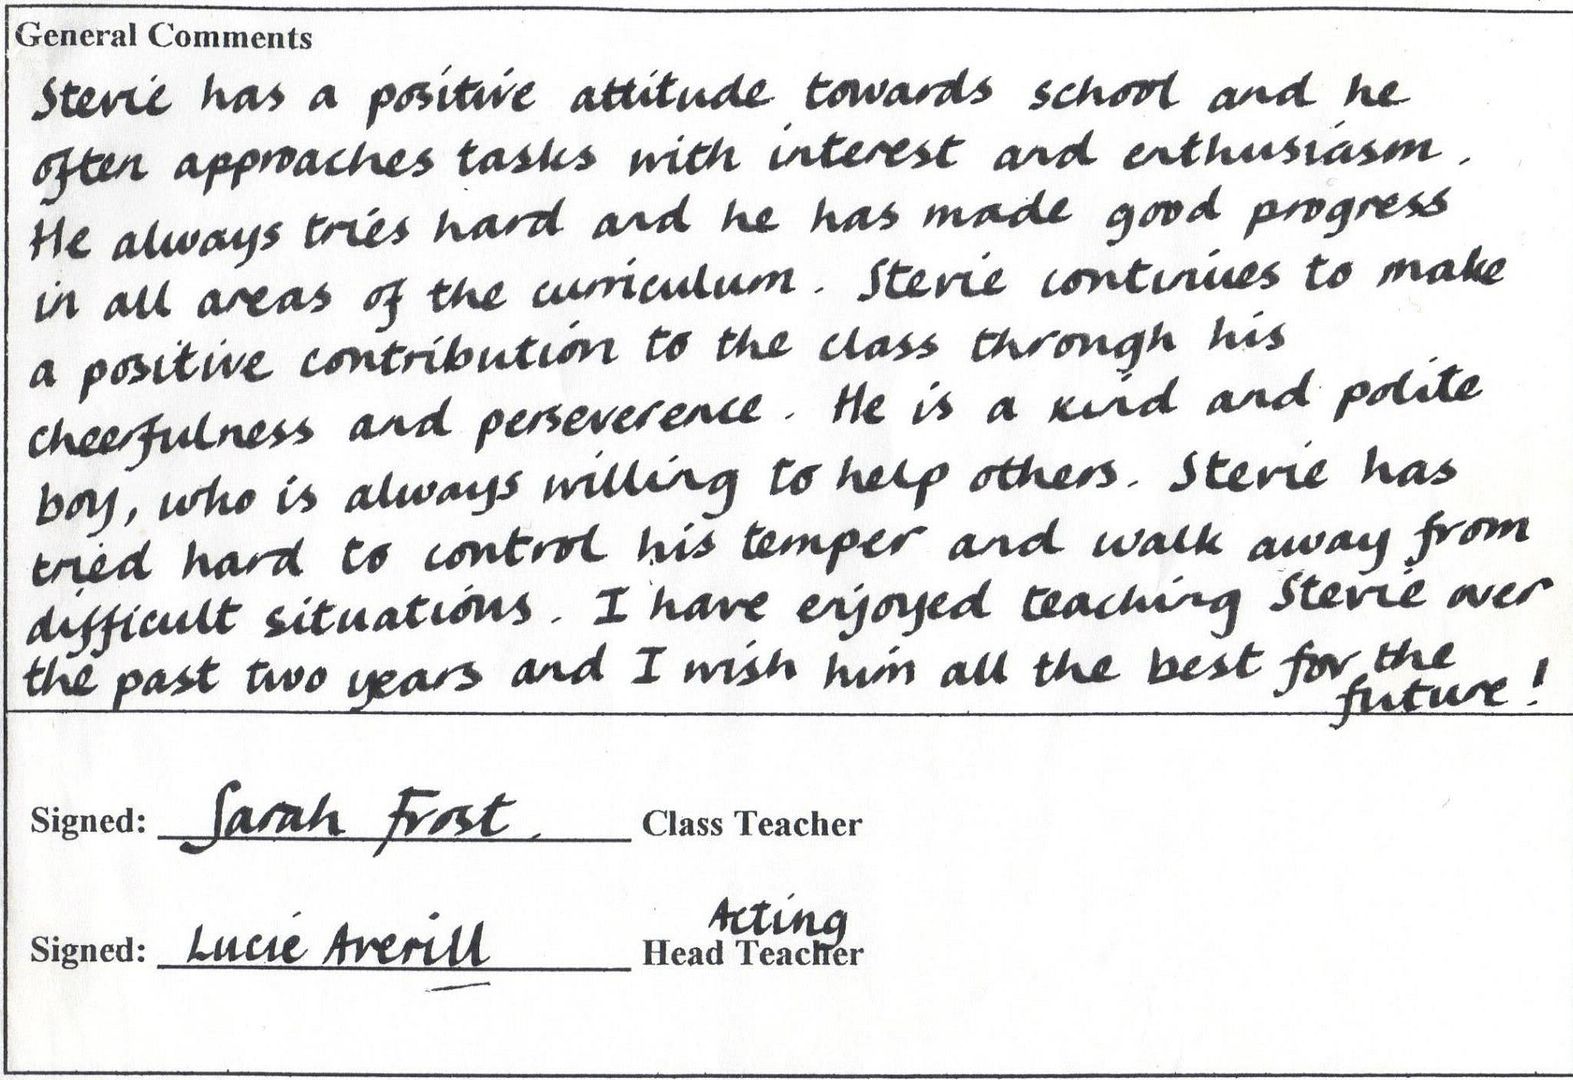 General Comments
Stevie has a positive attitude towards school and he
often approaches tasks with interest and enthusiasm.
He always tries hard and he has made good progress
in all areas of the curriculum. Stevie continues to make
a positive contribution to the class through his
cheerfulness and perseverence. He is a kind and polite
boy, who is always willing to help others. Stevie has
tried hard to control his temper and walk away from
difficult situations. I have enjoyed teaching Stevie over
the past two years and I wish him all the best for the
future!
Signed: Sarah Frost. Class Teacher
Acting
Signed: Lucie Averill Head Teacher